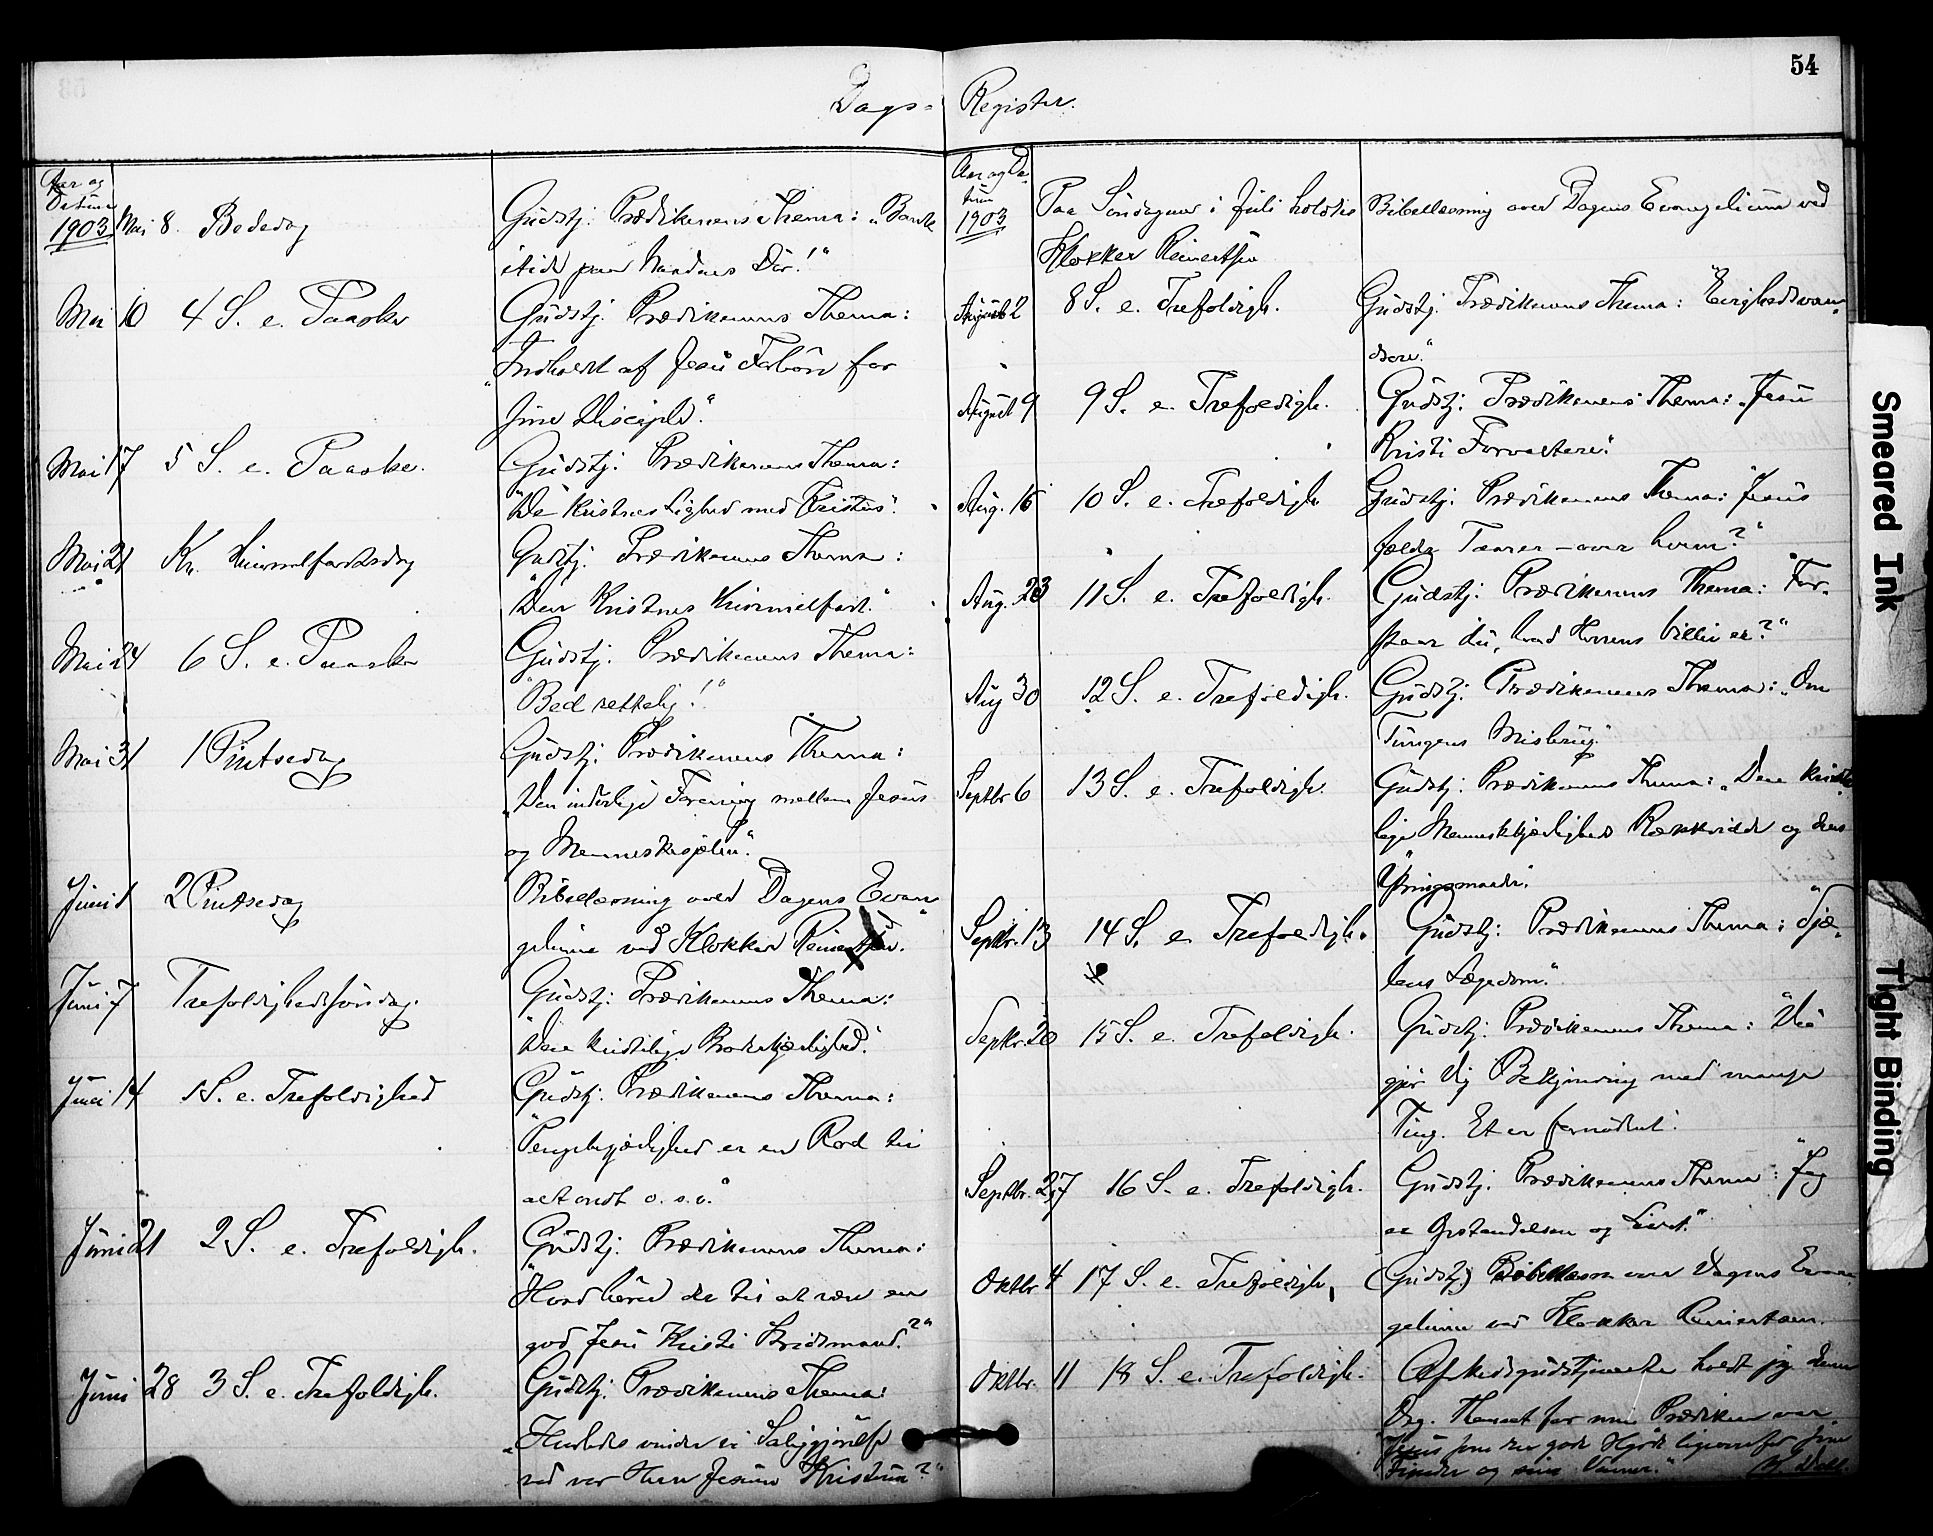 54
Dags- Register.
Aar og
Datum
1903 Mai 8. Bededag Gudstj. Prædikenens Thema: "Banke
itide paa Naadens Dør!"
Mai 10 4 S. e. Paaske Gudstj. Prædikenens Thema:
"Indholdet af Jesu Forbøn for
sine Disciple."
Mai 17 5 S. e. Paaske. Gudstj. Prædikenens Thema:
"De Kristnes Lighed med Kristus".
Mai 21 Kr. Himmelfartsdag Gudstj. Prædikenens Thema:
"Den Kristnes Himmelfart."
Mai 24 6 S. e. Paaske Gudstj. Prædikenens Thema:
"Bed rettelig!"
Mai 31 1 Pintsedag Gudstj. Prædikenens Thema:
"Den inderlige Forening mellem Jesus
og Menneskesjælen."
Juni 1 2 Pintsedag Bibellæsning over Dagens Evan-
gelium ved Klokker Reinertsen.
Juni 7 Trefoldighedssøndag. Gudstj. Prædikenens Thema:
"Den kristelige Broderkjærlighed."
Juni 14 1 S. e. Trefoldighed Gudstj. Prædikenens Thema:
"Pengekjærlighed er en Rod til
alt ondt o. s. v."
Juni 21 2 S. e. Trefoldigh. Gudstj. Prædikenens Thema:
"Hvad hører der til at være en
god Jesu Kristi Stridsmand?"
Juni 28 3 S. e. Trefoldigh. Gudstj. Prædikenens Thema:
"Hvorledes vinder vi Saliggjørelse
ved vor Herre Jesum Kristum?"
Aar og Da-
tum
1903 Paa Søndagene i Juli holdtes Bibellæsning over Dagens Evangelium ved
Klokker Reinertsen
August 2 8 S. e. Trefoldigh. Gudstj. Prædikenens Thema: "Evighedsvan-
drere."
August 9 9 S. e. Trefoldigh. Gudstj. Prædikenens Thema: "Jesu
Kristi Forvaltere."
Aug. 16 10 S. e. Trefoldigh Gudstj. Prædikenens Thema: "Jesus
fælder Taarer - over hvem?"
Aug. 23 11 S. e. Trefoldigh. Gudstj. Prædikenens Thema: "For-
staar du, hvad Herrens Villie er?"
Aug 30 12 S. e. Trefoldigh. Gudstj. Prædikenens Thema: "Om
Tungens Misbrug."
Septbr 6 13 S. e. Trefoldigh. Gudstj. Prædikenens Thema: "Den kriste-
lige Menneskekjærligheds Rækkevidde og dens
Ytringsmaade."
Septbr. 13 14 S. e. Trefoldigh. Gudstj. Prædikenens Thema: "Sjæ-
lens Lægedom."
Septbr. 20 15 S. e. Trefoldigh. Gudstj. Prædikenens Thema: "Du
gjør dig Bekymring med mange
Ting. Et er fornødent."
Septbr. 27 16 S. e. Trefoldigh. Gudstj. Prædikenens Thema: "Jeg
er Opstandelsen og Livet."
Oktbr. 4 17 S. e. Trefoldigh. (Gudstj.) Bibellæsn over Dagens Evan-
gelium ved Klokker Reinertsen.
Oktbr. 11 18 S. e. Trefoldigh. Afskedsgudstjeneste holdt jeg denne
Dag. Themaet for min Prædiken var
"Jesus som den gode Hyrde ligeoverfor sine
Fiender og sine Venner."
Smeared Ink
Tight Binding